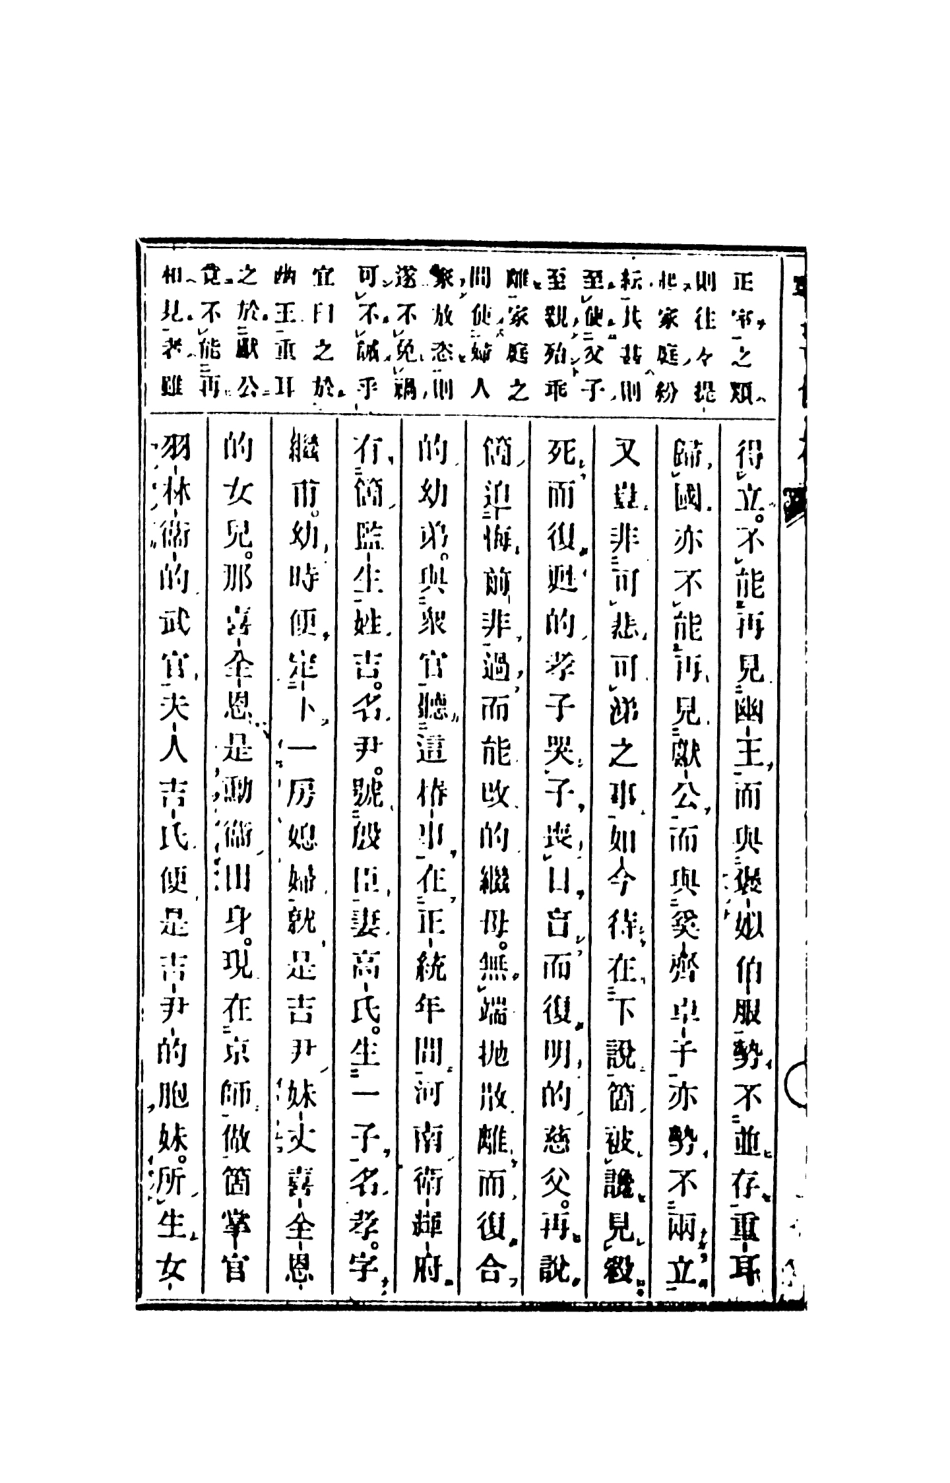 正室之類
則往々提
起家庭紛
紜其甚則
至使父子
至親殆乖
離家庭之
間使婦人
衆放恣則
遂不免禍
可不誠乎
宜臼之於
幽王重耳
之於獻公
竟不能再
相見者雖
得立。不能再見幽王而與褒姒伯服勢不並存重耳
歸國亦不能再見獻公而與奚齊卓子亦勢不兩立
又豈非可悲可涕之事如今待在下說箇被讒見殺
死而復甦的孝子哭子喪目盲而復明的慈父。再說
箇追悔前非過而能改的繼母。無端拋散離而復合
的幼弟。與衆官聽這樁事在正統年間河南衛輝府
有箇監生姓吉。名尹。號殷臣妻高氏。生一子名孝。字
繼甫。幼時便定下一房媳婦就是吉尹妹丈喜全恩
的女兒。那喜全恩是勳衛出身。現在京師做箇掌官
羽林衛的武官夫人吉氏便是吉尹的胞妹。所生女